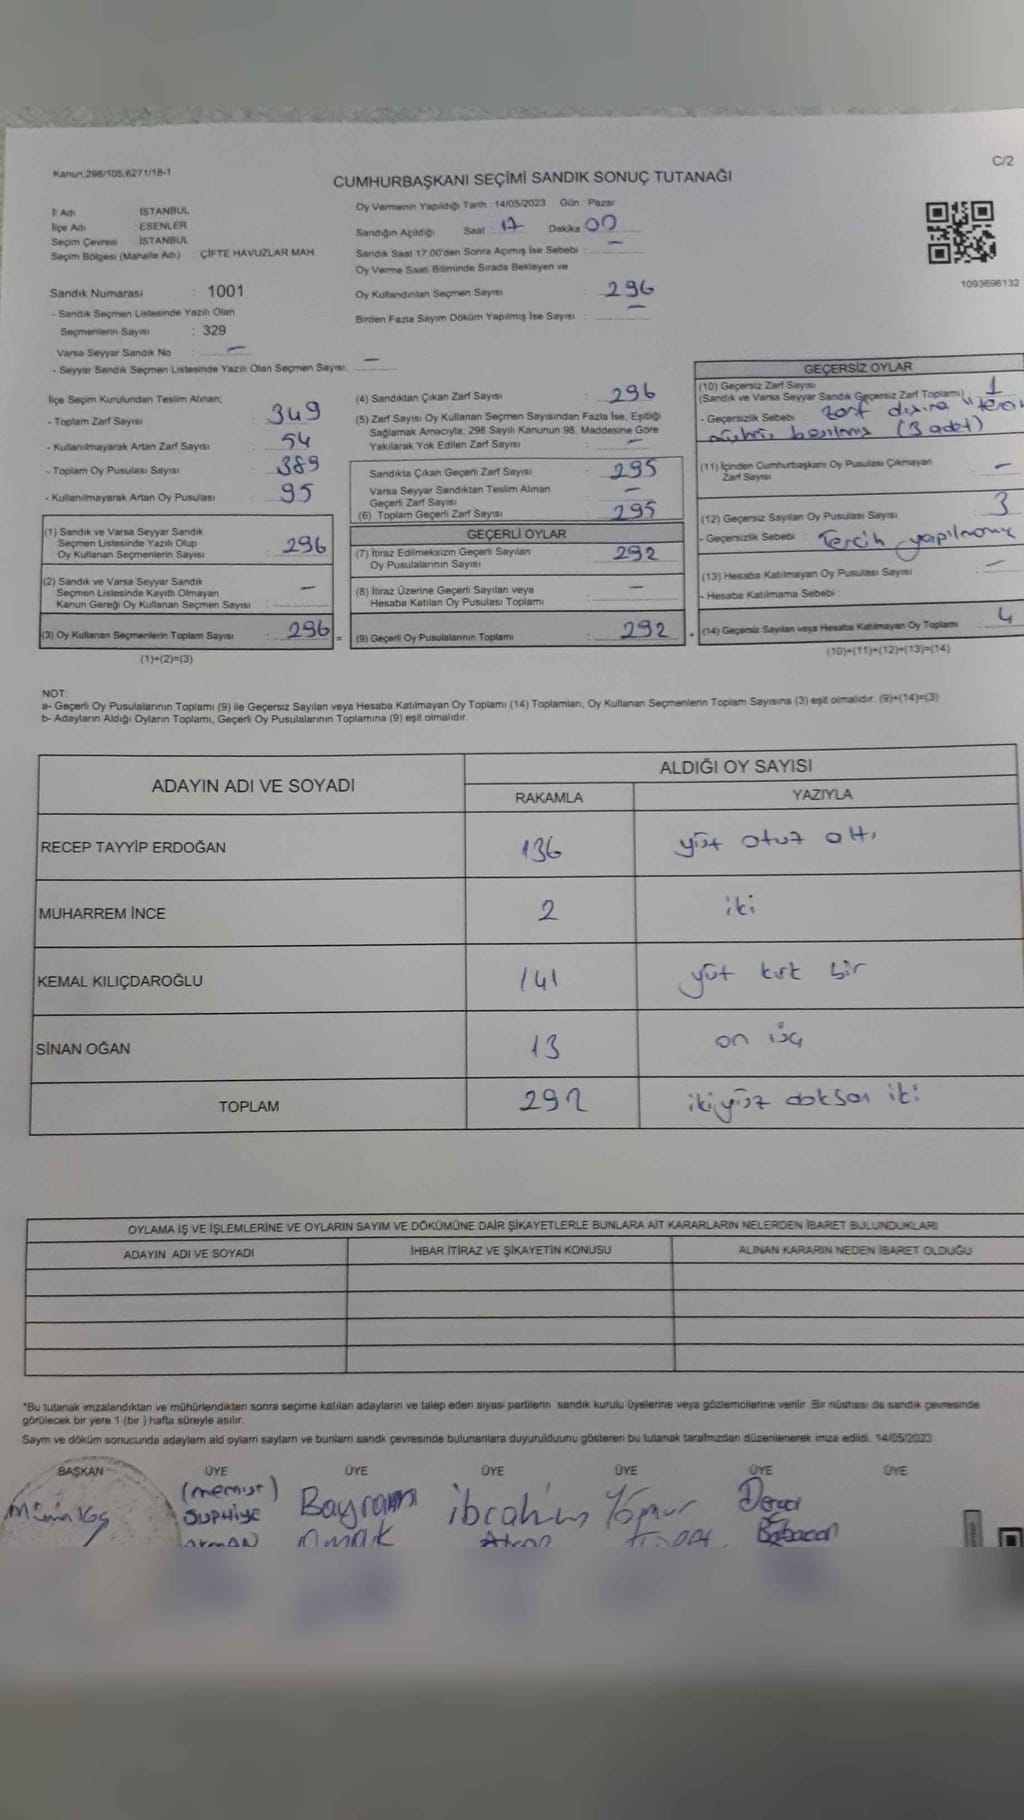 Kanun:298/105,6271/18-1
C/2
CUMHURBAŞKANI SEÇİMİ SANDIK SONUÇ TUTANAĞI
İl Adı : İSTANBUL
İlçe Adı : ESENLER
Seçim Çevresi : İSTANBUL
Seçim Bölgesi (Mahalle Adı) : ÇİFTE HAVUZLAR MAH.
Sandık Numarası : 1001
- Sandık Seçmen Listesinde Yazılı Olan
Seçmenlerin Sayısı : 329
Varsa Seyyar Sandık No : —
- Seyyar Sandık Seçmen Listesinde Yazılı Olan Seçmen Sayısı: —
Oy Vermenin Yapıldığı Tarih : 14/05/2023 Gün : Pazar
Sandığın Açıldığı Saat : 17 Dakika : 00
Sandık Saat 17:00'den Sonra Açımış İse Sebebi : —
Oy Verme Saati Bitiminde Sırada Bekleyen ve
Oy Kullandırılan Seçmen Sayısı : 296
Birden Fazla Sayım Döküm Yapılmış İse Sayısı : —
1093696132
İlçe Seçim Kurulundan Teslim Alınan;
- Toplam Zarf Sayısı : 349
- Kullanılmayarak Artan Zarf Sayısı : 54
- Toplam Oy Pusulası Sayısı : 389
- Kullanılmayarak Artan Oy Pusulası : 95
(1) Sandık ve Varsa Seyyar Sandık
Seçmen Listesinde Yazılı Olup
Oy Kullanan Seçmenlerin Sayısı : 296
(2) Sandık ve Varsa Seyyar Sandık
Seçmen Listesinde Kayıtlı Olmayan
Kanun Gereği Oy Kullanan Seçmen Sayısı : —
(3) Oy Kullanan Seçmenlerin Toplam Sayısı : 296 =
(1)+(2)=(3)
(4) Sandıktan Çıkan Zarf Sayısı : 296
(5) Zarf Sayısı Oy Kullanan Seçmen Sayısından Fazla İse, Eşitliği
Sağlamak Amacıyla; 298 Sayılı Kanunun 98. Maddesine Göre
Yakılarak Yok Edilen Zarf Sayısı : —
Sandıkta Çıkan Geçerli Zarf Sayısı : 295
Varsa Seyyar Sandıktan Teslim Alınan
Geçerli Zarf Sayısı : —
(6) Toplam Geçerli Zarf Sayısı : 295
GEÇERLİ OYLAR
(7) İtiraz Edilmeksizin Geçerli Sayılan
Oy Pusulalarının Sayısı : 292
(8) İtiraz Üzerine Geçerli Sayılan veya
Hesaba Katılan Oy Pusulası Toplamı : —
(9) Geçerli Oy Pusulalarının Toplamı : 292 +
GEÇERSİZ OYLAR
(10) Geçersiz Zarf Sayısı
(Sandık ve Varsa Seyyar Sandık Geçersiz Zarf Toplamı) : 1
- Geçersizlik Sebebi : Zarf dışına
(3 adet)
(11) İçinden Cumhurbaşkanı Oy Pusulası Çıkmayan
Zarf Sayısı : —
(12) Geçersiz Sayılan Oy Pusulası Sayısı : 3
- Geçersizlik Sebebi : Tercih yapılmamış
(13) Hesaba Katılmayan Oy Pusulası Sayısı : —
- Hesaba Katılmama Sebebi :
(14) Geçersiz Sayılan veya Hesaba Katılmayan Oy Toplamı : 4
(10)+(11)+(12)+(13)=(14)
NOT:
a- Geçerli Oy Pusulalarının Toplamı (9) ile Geçersiz Sayılan veya Hesaba Katılmayan Oy Toplamı (14) Toplamları, Oy Kullanan Seçmenlerin Toplam Sayısına (3) eşit olmalıdır. (9)+(14)=(3)
b- Adayların Aldığı Oyların Toplamı, Geçerli Oy Pusulalarının Toplamına (9) eşit olmalıdır.
ADAYIN ADI VE SOYADI
ALDIĞI OY SAYISI
RAKAMLA YAZIYLA
RECEP TAYYİP ERDOĞAN 136 yüz otuz altı
MUHARREM İNCE 2 iki
KEMAL KILIÇDAROĞLU 141 yüz kırk bir
SİNAN OĞAN 13 on üç
TOPLAM 292 ikiyüz doksan iki
OYLAMA İŞ VE İŞLEMLERİNE VE OYLARIN SAYIM VE DÖKÜMÜNE DAİR ŞİKAYETLERLE BUNLARA AİT KARARLARIN NELERDEN İBARET BULUNDUKLARI
ADAYIN ADI VE SOYADI İHBAR İTİRAZ VE ŞİKAYETİN KONUSU ALINAN KARARIN NEDEN İBARET OLDUĞU
*Bu tutanak imzalandıktan ve mühürlendikten sonra seçime katılan adayların ve talep eden siyasi partilerin sandık kurulu üyelerine veya gözlemcilerine verilir. Bir nüshası da sandık çevresinde
görülecek bir yere 1 (bir ) hafta süreyle asılır.
Sayım ve döküm sonucunda adayların ald oyların sayların ve bunların sandk çevresinde bulunanlara duyurulduunu gösteren bu tutanak tarafımzdan düzenlenerek imza edildi. 14/05/2023
BAŞKAN ÜYE ÜYE ÜYE ÜYE ÜYE ÜYE
(memur) Bayram ibrahim
SUPHİYE
Babacan